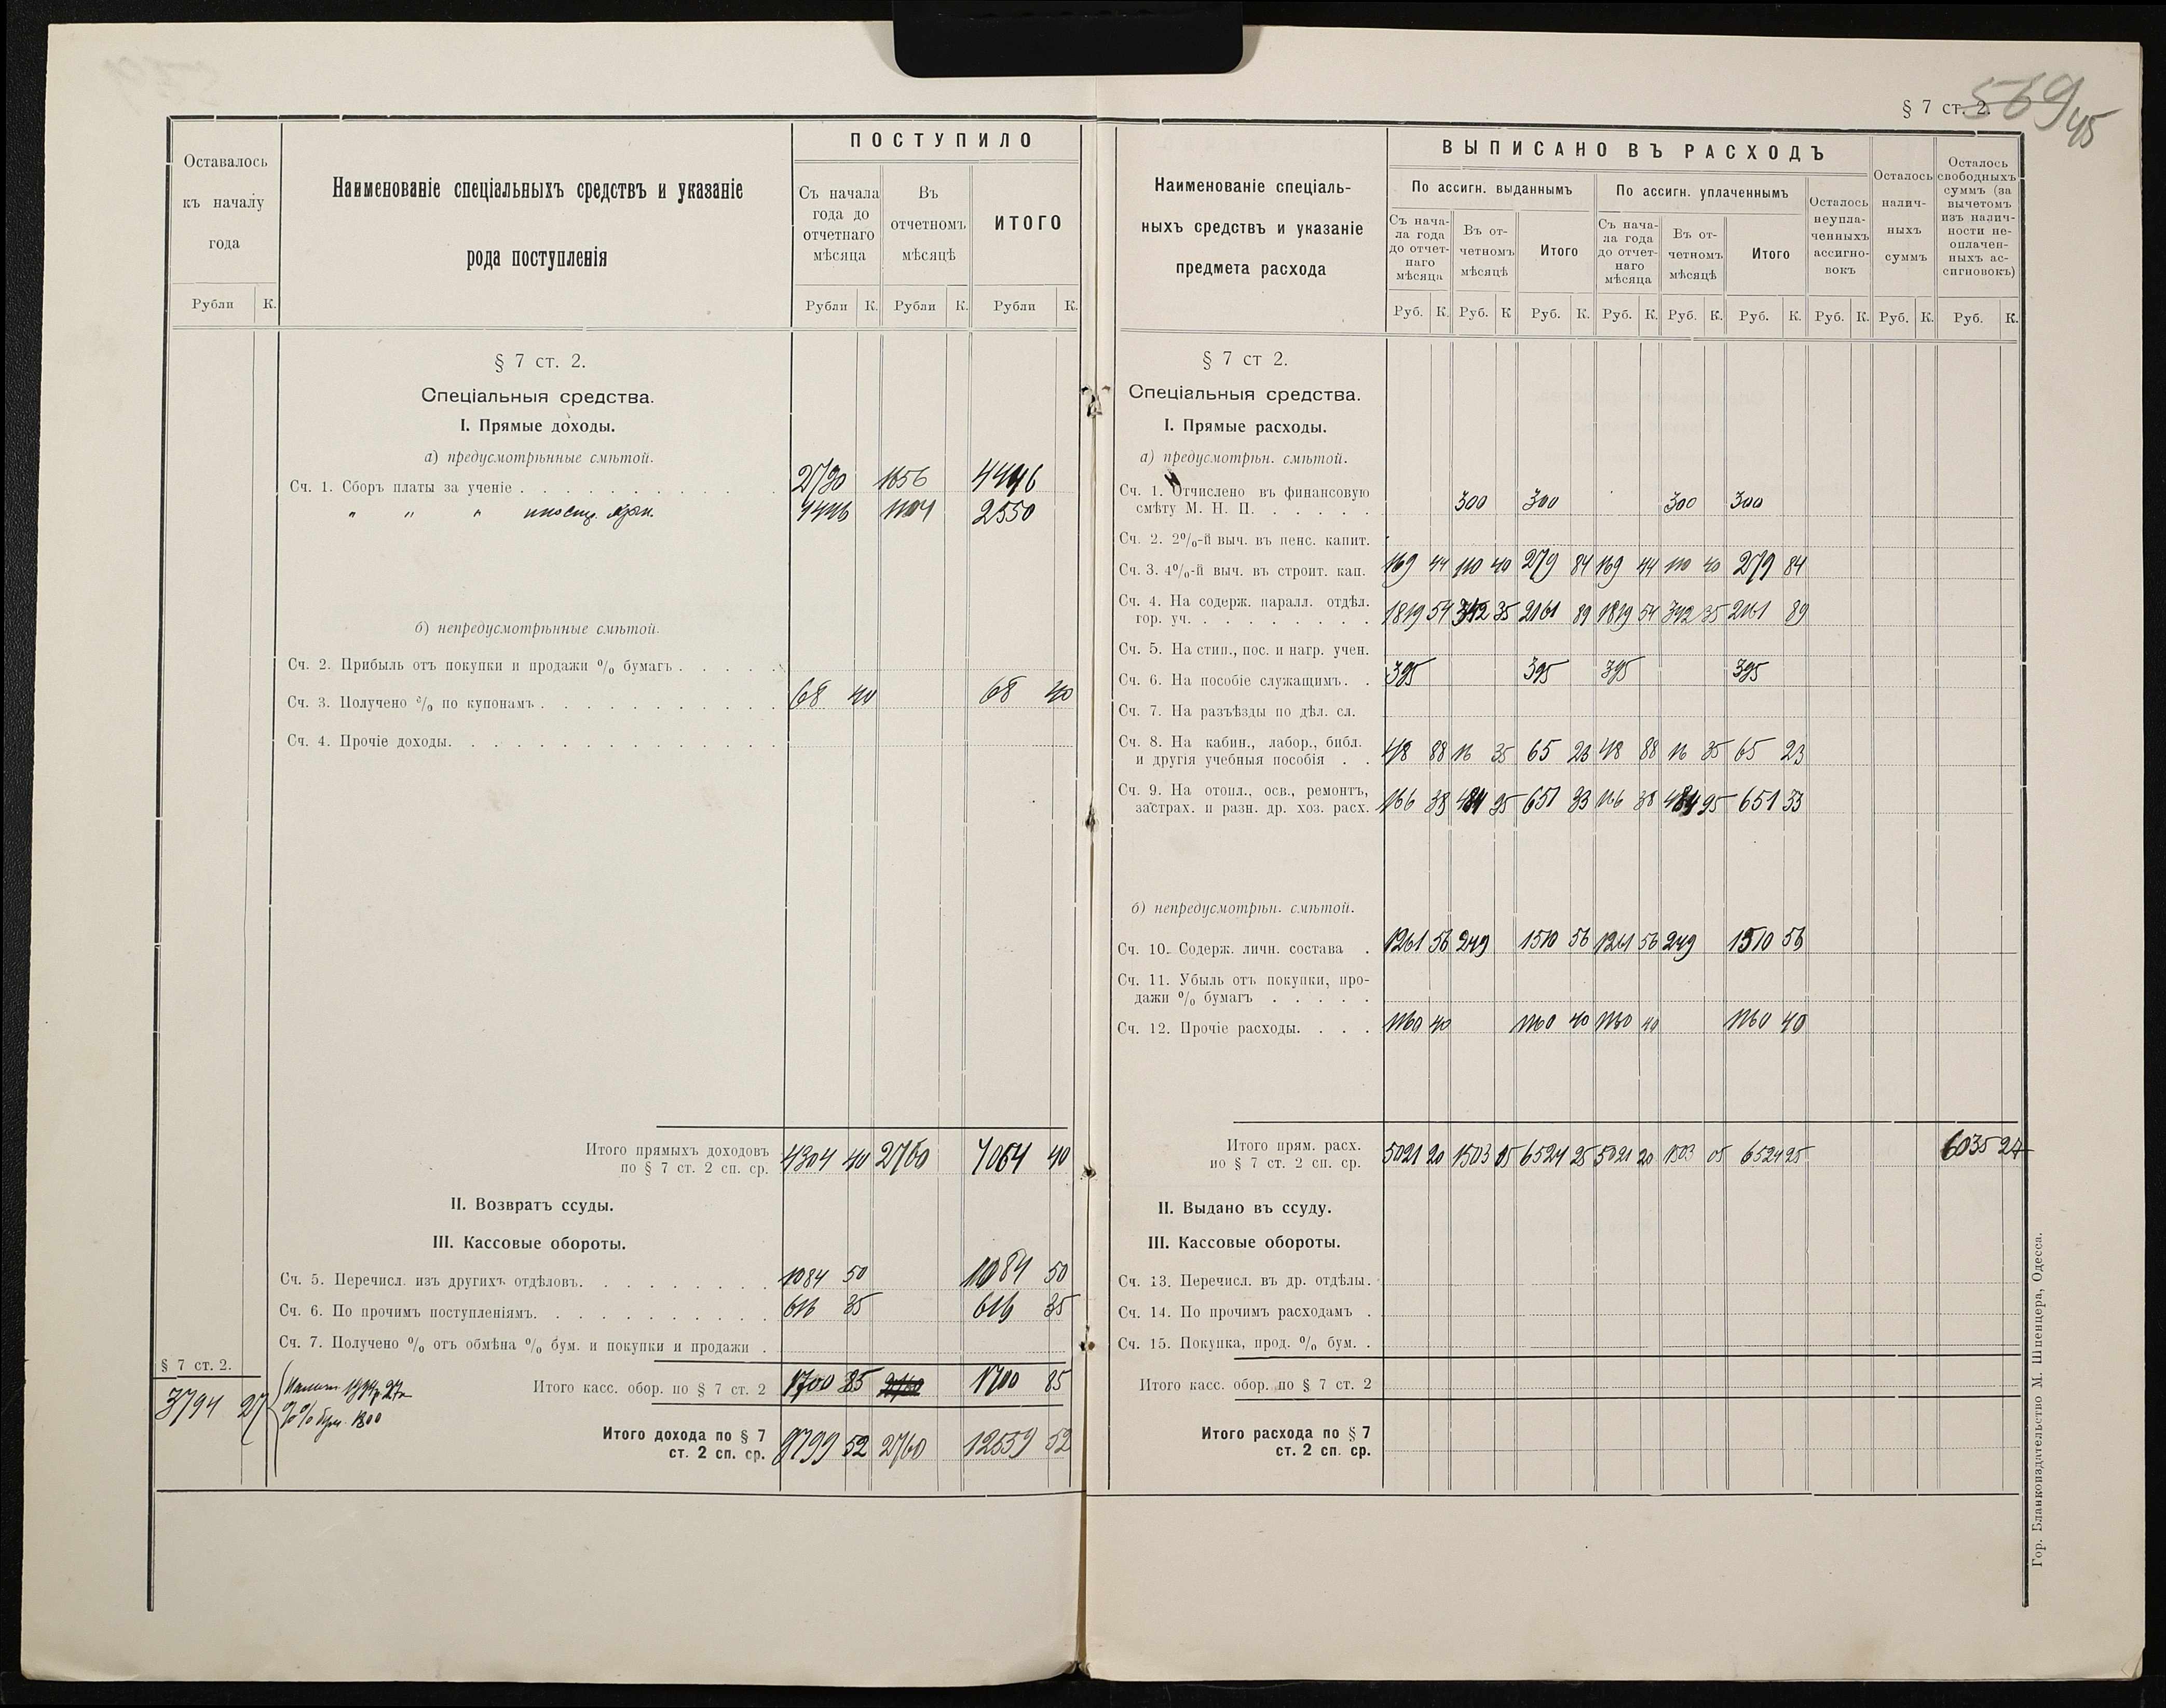 § 7 ст. 2.
569/45
Оставалось къ началу года
Наименованіе спеціальныхъ средствъ и указаніе рода поступленія
ПОСТУПИЛО
Съ начала года до отчетнаго мѣсяца
Въ отчетномъ мѣсяцѣ
ИТОГО
Рубли К. Рубли К. Рубли К. Рубли К.
§ 7 ст. 2.
Спеціальныя средства.
I. Прямые доходы.
а) предусмотрѣнные смѣтой.
Сч. 1. Сборъ платы за ученіе . . . 2790 1656 4446
" " " 1446 1104 2550
б) непредусмотрѣнные смѣтой.
Сч. 2. Прибыль отъ покупки и продажи % бумагъ . . . .
Сч. 3. Получено % по купонамъ . . . 68 40 68 40
Сч. 4. Прочіе доходы. . . .
Итого прямыхъ доходовъ
по § 7 ст. 2 сп. ср. 4304 40 2760 7064 40
II. Возвратъ ссуды.
III. Кассовые обороты.
Сч. 5. Перечисл. изъ другихъ отдѣловъ. . . . 1084 50 1084 50
Сч. 6. По прочимъ поступленіямъ. . . . 616 35 616 35
Сч. 7. Получено % отъ обмѣна % бум. и покупки и продажи .
§ 7 ст. 2.
Итого касс. обор. по § 7 ст. 2 1700 85 1700 85
3794 27
% % бум. 1800
Итого дохода по § 7
ст. 2 сп. ср. 9799 52 2760 12559 52
Наименованіе спеціаль-
ныхъ средствъ и указаніе
предмета расхода
ВЫПИСАНО ВЪ РАСХОДЪ
По ассигн. выданнымъ
По ассигн. уплаченнымъ
Съ нача-
ла года
до отчет-
наго
мѣсяца
Въ от-
четномъ
мѣсяцѣ
Итого
Съ нача-
ла года
до отчет-
наго
мѣсяца
Въ от-
четномъ
мѣсяцѣ
Итого
Осталось
неупла-
ченныхъ
ассигно-
вокъ
Осталось
налич-
ныхъ
суммъ
Осталось
свободныхъ
суммъ (за
вычетомъ
изъ налич-
ности не-
оплачен-
ныхъ ас-
сигновокъ)
Руб. К. Руб. К Руб. К. Руб. К. Руб. К. Руб. К. Руб. К. Руб. К. Руб. К.
§ 7 ст 2.
Спеціальныя средства.
I. Прямые расходы.
а) предусмотрѣн. смѣтой.
Сч. 1. Отчислено въ финансовую
смѣту М. Н. П. . . . . . 300 300 300 300
Сч. 2. 2%-й выч. въ пенс. капит.
Сч. 3. 4%-й выч. въ строит. кап. 169 44 110 40 279 84 169 44 110 40 279 84
Сч. 4. На содерж. паралл. отдѣл.
гор. уч. . . . . . . . . 1819 54 342 35 2161 89 1819 54 342 35 2161 89
Сч. 5. На стип., пос. и нагр. учен.
Сч. 6. На пособіе служащимъ. . 395 395 395 395
Сч. 7. На разъѣзды по дѣл. сл.
Сч. 8. На кабин., лабор., библ.
и другія учебныя пособія . . 48 88 16 35 65 23 48 88 16 35 65 23
Сч. 9. На отопл., осв., ремонтъ,
застрах. и разн. др. хоз. расх. 166 38 484 95 651 33 166 38 484 95 651 33
б) непредусмотрѣн. смѣтой.
Сч. 10. Содерж. личн. состава . 1261 56 249 1510 56 1261 56 249 1510 56
Сч. 11. Убыль отъ покупки, про-
дажи % бумагъ . . . . .
Сч. 12. Прочіе расходы. . . . 1160 40 1160 40 1160 40 1160 40
Итого прям. расх.
по § 7 ст. 2 сп. ср. 5021 20 1503 05 6524 25 5021 20 1503 05 6524 25 6035 27
II. Выдано въ ссуду.
III. Кассовые обороты.
Сч. 13. Перечисл. въ др. отдѣлы.
Сч. 14. По прочимъ расходамъ .
Сч. 15. Покупка, прод. % бум. .
Итого касс. обор. по § 7 ст. 2
Итого расхода по § 7
ст. 2 сп. ср.
Гор. Бланкоиздательство М. Шпенцера, Одесса.